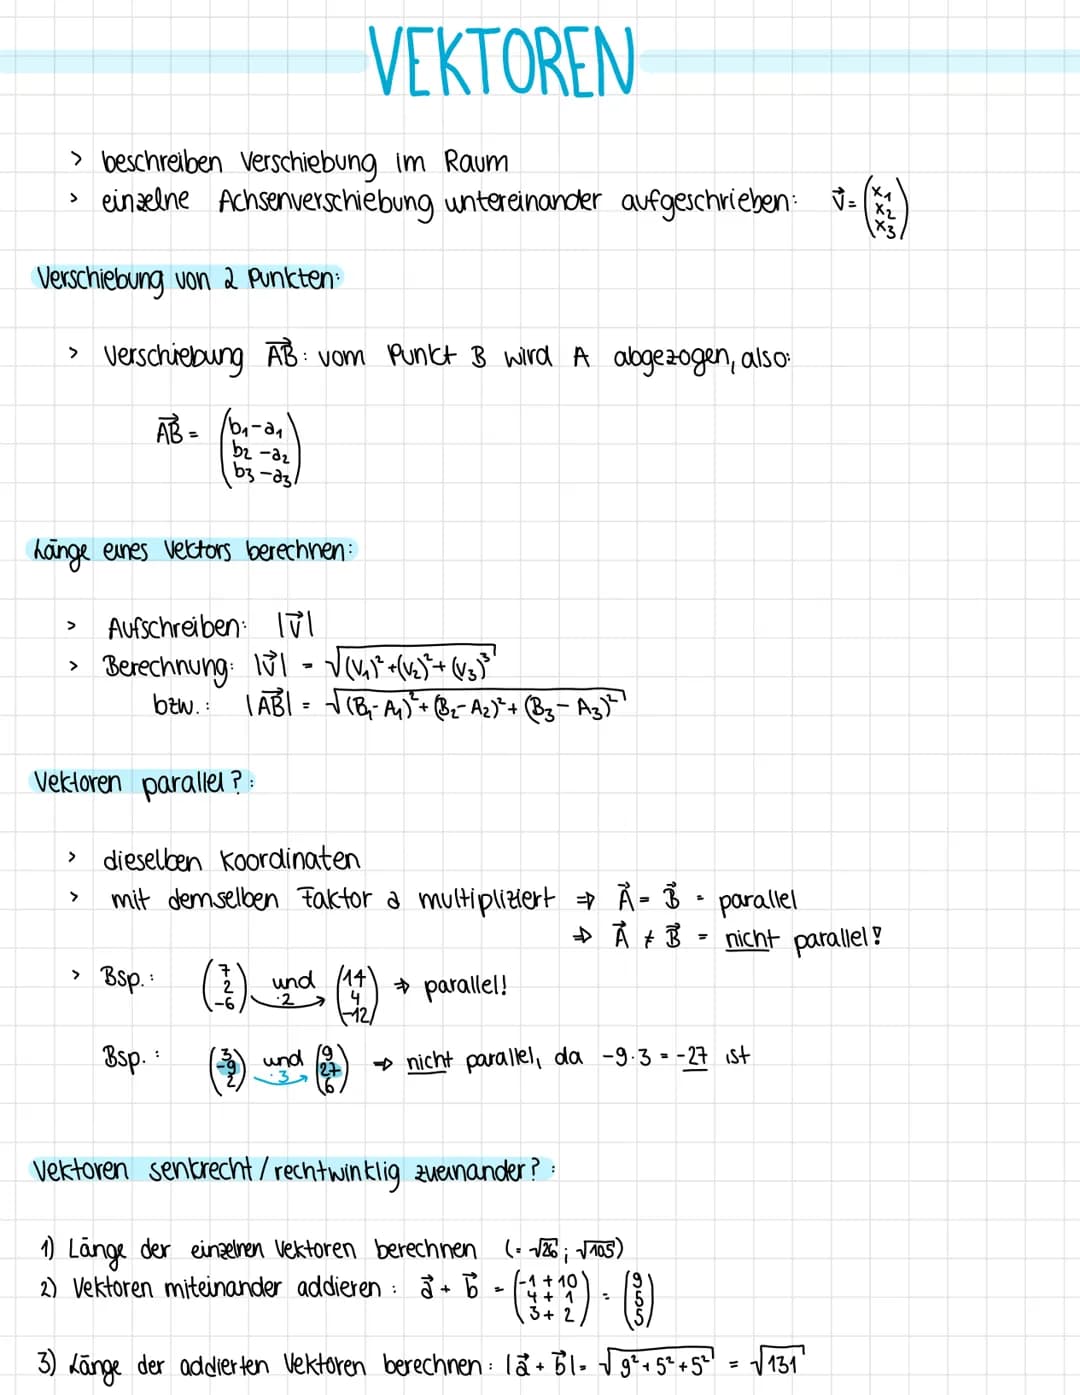 VEKTOREN
> beschreiben Verschiebung im Raum
> einzelne Achsenverschiebung untereinander aufgeschrieben: v⃗ = (x₁ x₂ x₃)
Verschiebung von 2 Punkten:
> Verschiebung A͞B⃗: vom Punkt B wird A abgezogen, also:
AB⃗ = (b₁-a₁
b₂-a₂
b₃-a₃)
Länge eines Vektors berechnen:
> Aufschreiben: |v⃗|
> Berechnung: |v⃗| = √(v₁)²+(v₂)²+(v₃)³
bzw.: |AB⃗| = √(B₁-A₁)²+(B₂-A₂)²+(B₃-A₃)²
Vektoren parallel?:
> dieselben Koordinaten
> mit demselben Faktor a multipliziert ⇒ A⃗ = B⃗ = parallel
⇒ A⃗ ≠ B⃗ = nicht parallel!
> Bsp.: (7 2 -6) und ·2 → (14 4 -12) ⇒ parallel!
Bsp.: (3 -9 2) und ·3 → (9 27 6) ⇒ nicht parallel, da -9·3 = -27 ist
Vektoren senkrecht/rechtwinklig zueinander?:
1) Länge der einzelnen Vektoren berechnen (= √26; √105)
2) Vektoren miteinander addieren: a⃗ + b⃗ = (-1+10 4+1 3+2) = (9 5 5)
3) Länge der addierten Vektoren berechnen: |a⃗ + b⃗| = √9²+5²+5² = √131